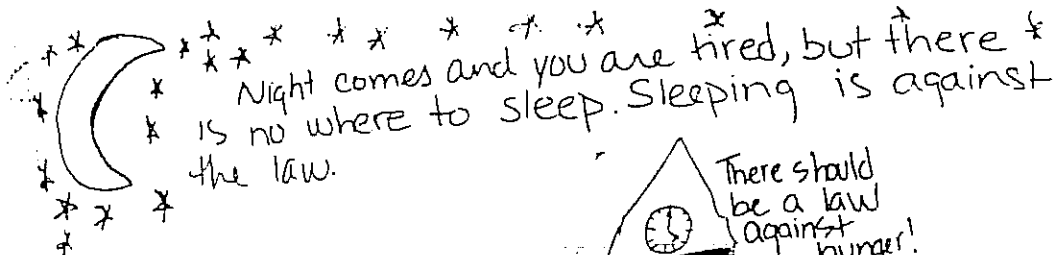 Night comes and you are tired, but there
is no where to sleep. Sleeping is against
the law.
There should
be a law
against
hunger!